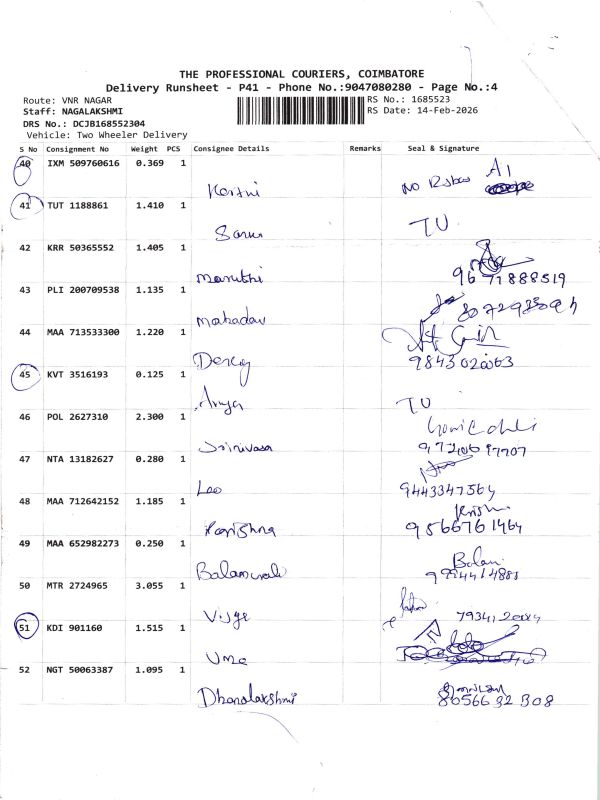 THE PROFESSIONAL COURIERS, COIMBATORE
Delivery Runsheet - P41 - Phone No.:9047080280 - Page No.:4
Route: VNR NAGAR
Staff: NAGALAKSHMI
DRS No.: DCJB168552304
Vehicle: Two Wheeler Delivery
RS No.: 1685523
RS Date: 14-Feb-2026
S No Consignment No Weight PCS Consignee Details Remarks Seal & Signature
40 IXM 509760616 0.369 1
41 TUT 1188861 1.410 1
Saru TU
42 KRR 50365552 1.405 1
Maruthi 9677888519
43 PLI 200709538 1.135 1
Mahadav
44 MAA 713533300 1.220 1
9843020063
45 KVT 3516193 0.125 1
Anya TU
46 POL 2627310 2.300 1
Srinivasa
47 NTA 13182627 0.280 1
Leo 9443347564
48 MAA 712642152 1.185 1
Krishna Krishn 9566761464
49 MAA 652982273 0.250 1
Balamurali Balan
50 MTR 2724965 3.055 1
Vijye
51 KDI 901160 1.515 1
Uma
52 NGT 50063387 1.095 1
Dhanalakshmi 8056692308